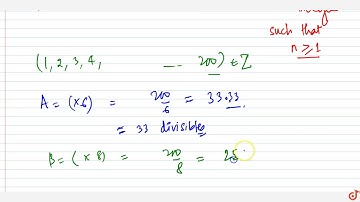 such that
n ≥ 1
(1, 2, 3, 4, ... 200) ∈ Z
A = (×6) = 200/6 = 33.33
= 33 divisible
B = (×8) = 200/8 = 25